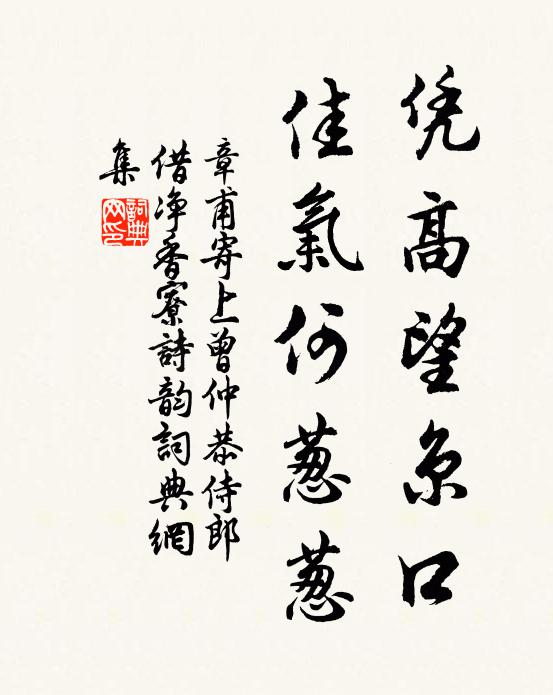 凭高望京口
佳氣何葱葱
章甫寄上曾仲恭侍郎
借净香寮詩韵詞典網
集
詞典網印